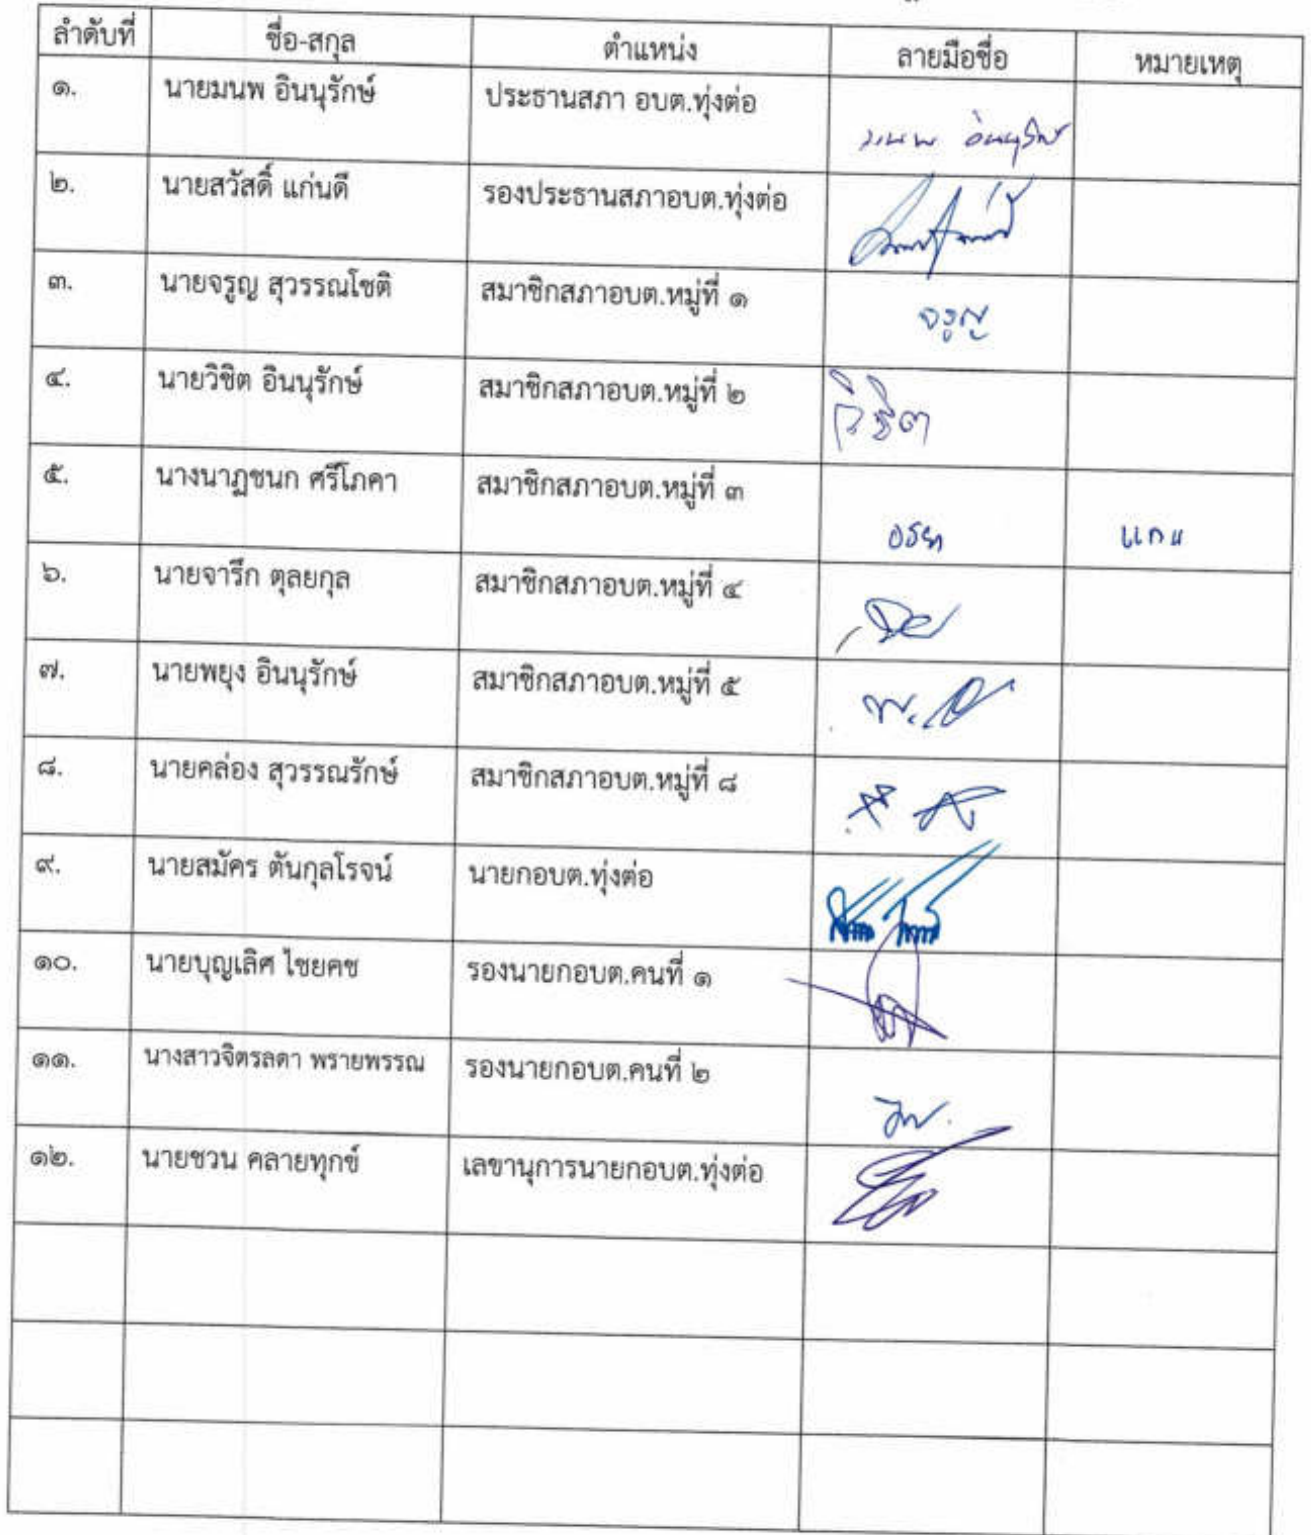 ลำดับที่ ชื่อ-สกุล ตำแหน่ง ลายมือชื่อ หมายเหตุ
๑. นายมนพ อินนุรักษ์ ประธานสภา อบต.ทุ่งต่อ มนพ อินนุรักษ์
๒. นายสวัสดิ์ แก่นดี รองประธานสภาอบต.ทุ่งต่อ
๓. นายจรูญ สุวรรณโชติ สมาชิกสภาอบต.หมู่ที่ ๑ จรูญ
๔. นายวิชิต อินนุรักษ์ สมาชิกสภาอบต.หมู่ที่ ๒ วิชิต
๕. นางนาฏชนก ศรีโภคา สมาชิกสภาอบต.หมู่ที่ ๓ แทน
๖. นายจารึก ตุลยกุล สมาชิกสภาอบต.หมู่ที่ ๔
๗. นายพยุง อินนุรักษ์ สมาชิกสภาอบต.หมู่ที่ ๕
๘. นายคล่อง สุวรรณรักษ์ สมาชิกสภาอบต.หมู่ที่ ๘
๙. นายสมัคร ตันกุลโรจน์ นายกอบต.ทุ่งต่อ
๑๐. นายบุญเลิศ ไชยคช รองนายกอบต.คนที่ ๑
๑๑. นางสาวจิตรลดา พรายพรรณ รองนายกอบต.คนที่ ๒
๑๒. นายชวน คลายทุกข์ เลขานุการนายกอบต.ทุ่งต่อ